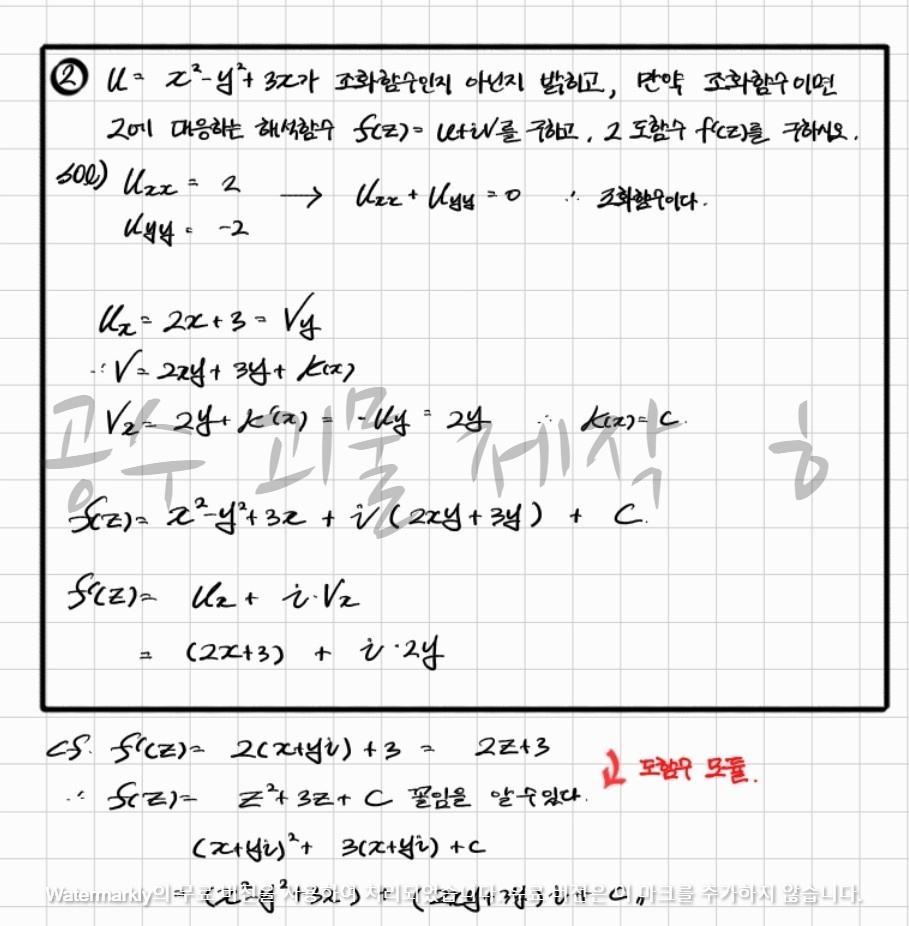 ② u = x²-y²+3x가 조화함수인지 아닌지 밝히고, 만약 조화함수이면
2에 대응하는 해석함수 f(z) = u+iv를 구하고, 2 도함수 f'(z)를 구하시오.
sol) Uxx = 2 → Uxx + Uyy = 0 ∴ 조화함수이다.
Uyy = -2
Ux = 2x+3 = Vy
∴ V = 2xy + 3y + k(x)
Vx = 2y + k'(x) = -Uy = 2y ∴ k(x) = C.
공수 괴물 제작 ㅎ
f(z) = x²-y²+3x + i (2xy+3y) + C.
f'(z) = Ux + i·Vx
= (2x+3) + i·2y
cf. f'(z) = 2(x+yi)+3 = 2z+3
도함수 모듈.
∴ f(z) = z²+3z+C 꼴임을 알 수 있다.
(x+yi)² + 3(x+yi) + C
= (x²-y²+3x) + (2xy+3y)i + C,,
Watermarkly의 무료 버전을 사용하여 처리되었습니다. 유료 버전은 이 마크를 추가하지 않습니다.